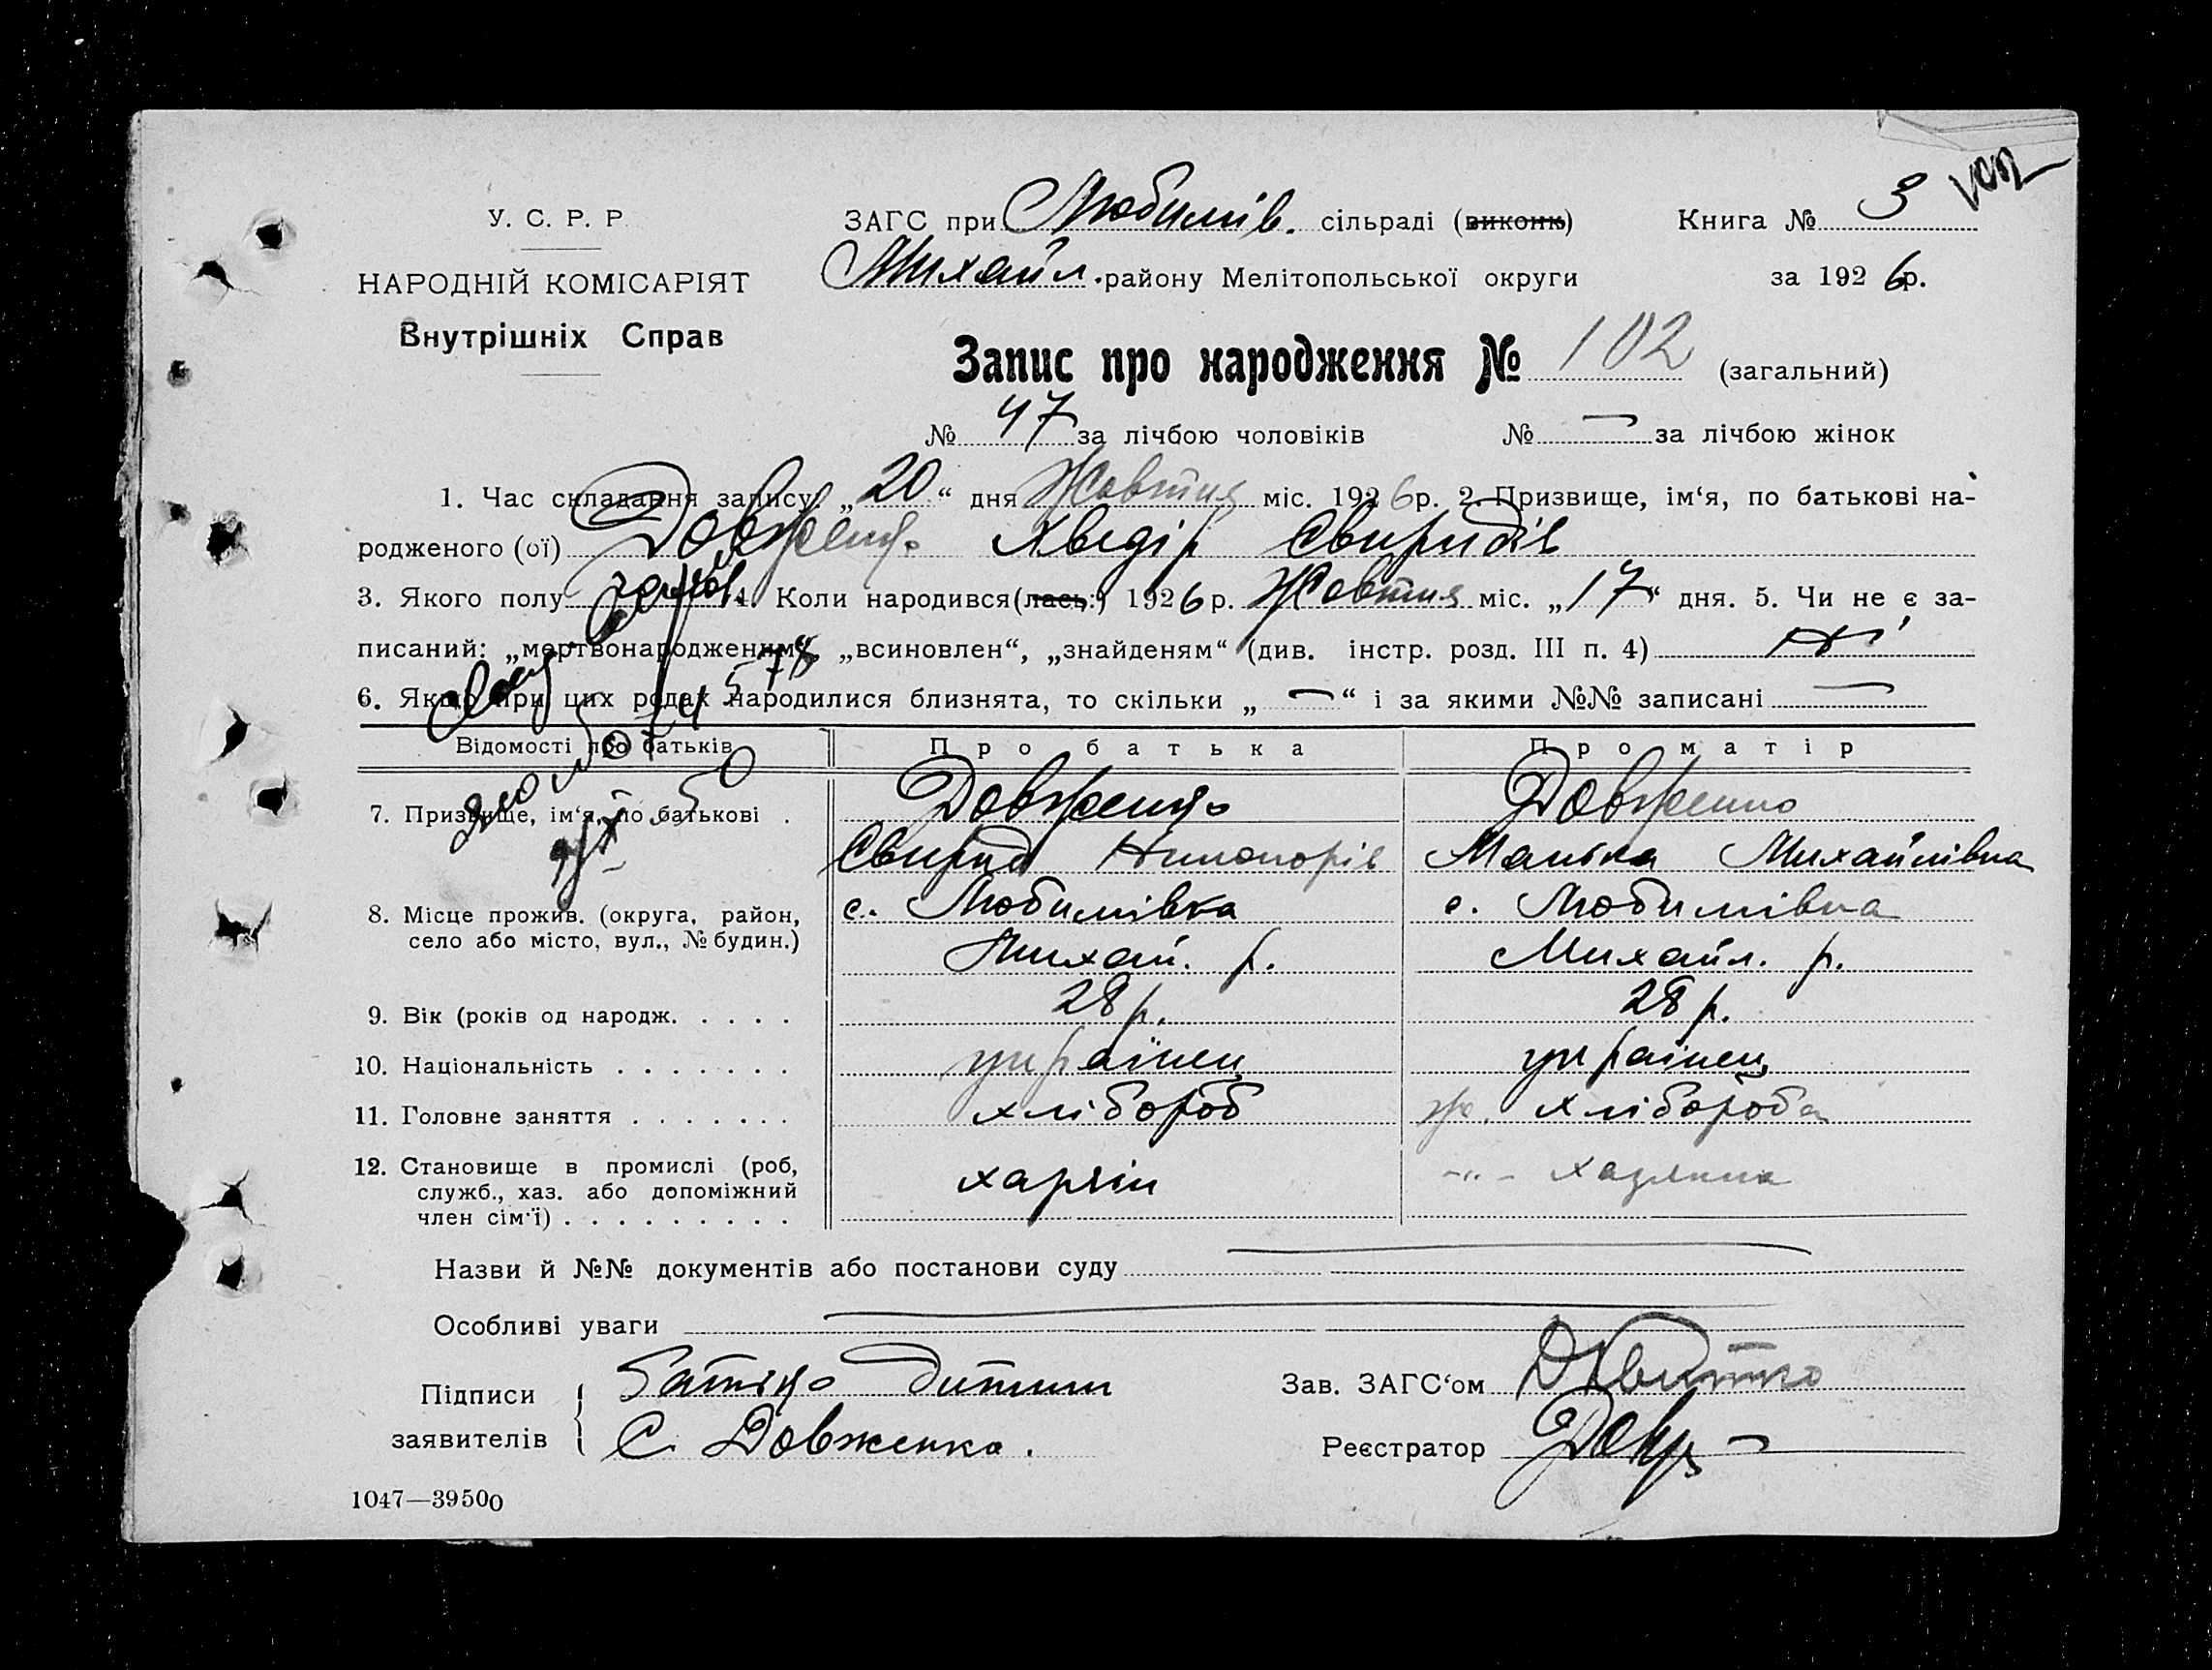 У. С. Р. Р.
НАРОДНІЙ КОМІСАРІЯТ
Внутрішніх Справ
ЗАГС при Любимів. сільраді (виконк) Книга № 3
Михайл. району Мелітопольської округи за 1926р.
Запис про народження № 102 (загальний)
№ 47 за лічбою чоловіків № — за лічбою жінок
1. Час складання запису „20“ дня Жовтня міс. 1926р. 2. Призвище, ім‘я, по батькові на-
родженого (ої) Довженко Хведір Свиридів
3. Якого полу 4. Коли народився(лась) 1926р. Жовтня міс. „17“ дня. 5. Чи не є за-
писаний: „мертвонародженим“, „всиновлен“, „знайденям“ (див. інстр. розд. III п. 4) Ні
6. Якщо при цих родах народилися близнята, то скільки „—“ і за якими №№ записані —
Відомості про батьків Про батька Про матір
7. Призвище, ім‘я, по батькові . Довженко Довженко
Свирид Никонорів Михайлівна
8. Місце прожив. (округа, район, с. Любимівка с. Любимівка
село або місто, вул., № будин.) Михай. р. Михайл. р.
9. Вік (років од народж. . . . . 28 р. 28 р.
10. Національність . . . . . . . українец українец
11. Головне заняття . . . . . . . хлібороб ж. хлібороба
12. Становище в промислі (роб,
служб., хаз. або допоміжний хазяін -"- хазяина
член сім‘ї) . . . . . . . . .
Назви й №№ документів або постанови суду
Особливі уваги
Підписи Батько дитини Зав. ЗАГС‘ом
заявителів С. Довженко. Реєстратор
1047—39500